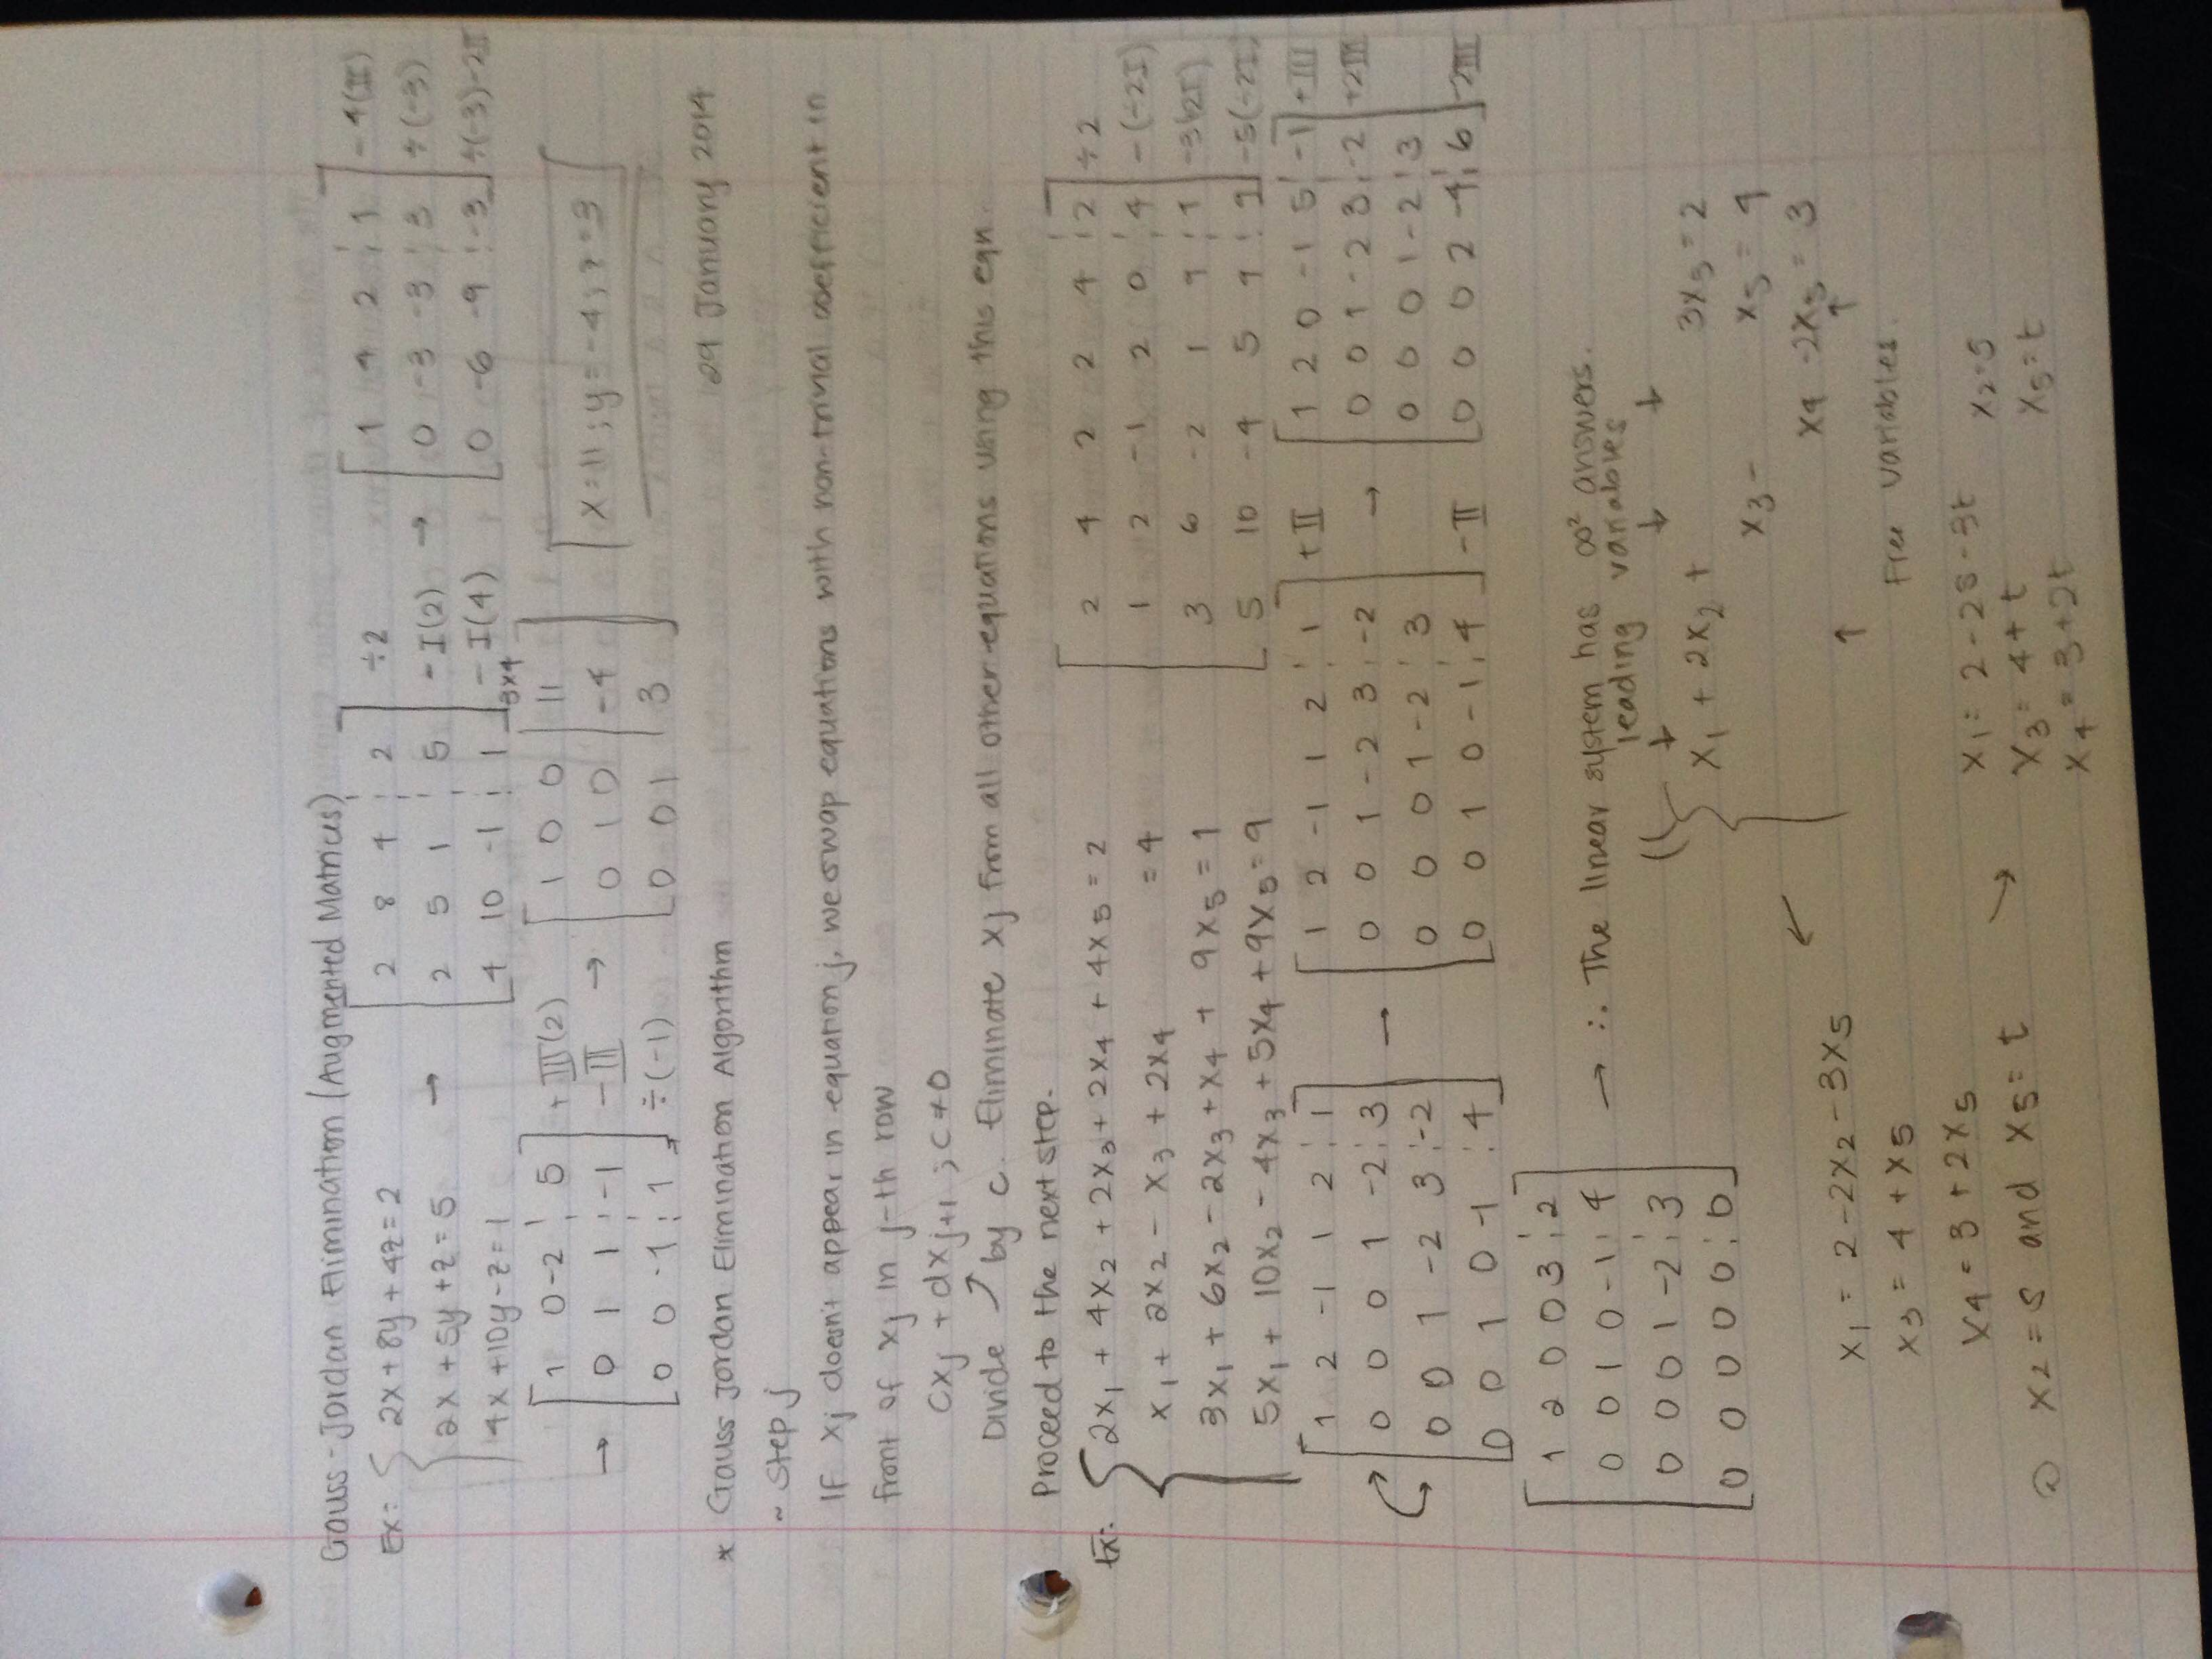 Gauss-Jordan Elimination (Augmented Matrices)
Ex: { 2x + 8y + 4z = 2
2x + 5y + z = 5
4x + 10y - z = 1
→
[ 2 8 4 ¦ 2 ] ÷2
[ 2 5 1 ¦ 5 ] - I(2) →
[ 4 10 -1 ¦ 1 ] - I(4)
3x4
[ 1 4 2 ¦ 1 ] - 4(II)
[ 0 -3 -3 ¦ 3 ] ÷(-3)
[ 0 -6 -9 ¦ -3 ] ÷(-3)-2II
[ 1 0 -2 ¦ 5 ] + III(2)
→ [ 0 1 1 ¦ -1 ] - III →
[ 0 0 -1 ¦ 1 ] ÷(-1)
[ 1 0 0 | 11 ]
[ 0 1 0 | -4 ]
[ 0 0 1 | 3 ]
x = 11 ; y = -4 ; z = 3
29 January 2014
* Gauss Jordan Elimination Algorithm
~ Step j
If xj doesn't appear in equation j, we swap equations with non-trivial coefficient in
front of xj in j-th row
cxj + dxj+1 ; c ≠ 0
Divide ↗ by c. Eliminate xj from all other equations using this eqn.
Proceed to the next step.
Ex: { 2x1 + 4x2 + 2x3 + 2x4 + 4x5 = 2
x1 + 2x2 - x3 + 2x4 = 4
3x1 + 6x2 - 2x3 + x4 + 9x5 = 1
5x1 + 10x2 - 4x3 + 5x4 + 9x5 = 9
[ 2 4 2 2 4 ¦ 2 ] ÷2
[ 1 2 -1 2 0 ¦ 4 ] -(÷2I)
[ 3 6 -2 1 9 ¦ 1 ]
[ 5 10 -4 5 9 ¦ 9 ] -5(÷2I)
[ 1 2 -1 1 2 ¦ 1 ]
[ 0 0 0 1 -2 ¦ 3 ] →
[ 0 0 1 -2 3 ¦ -2 ]
[ 0 0 1 0 -1 ¦ 4 ]
[ 1 2 -1 1 2 ¦ 1 ] + II
[ 0 0 1 -2 3 ¦ -2 ] →
[ 0 0 0 1 -2 ¦ 3 ]
[ 0 0 1 0 -1 ¦ 4 ] - II
[ 1 2 0 -1 5 ¦ -1 ] + III
[ 0 0 1 -2 3 ¦ -2 ] + 2III
[ 0 0 0 1 -2 ¦ 3 ]
[ 0 0 0 2 -4 ¦ 6 ] - 2III
[ 1 2 0 0 3 ¦ 2 ]
[ 0 0 1 0 -1 ¦ 4 ]
[ 0 0 0 1 -2 ¦ 3 ]
[ 0 0 0 0 0 ¦ 0 ]
→ ∴ The linear system has ∞² answers.
leading variables
x1 + 2x2 + 3x5 = 2
x3 - x5 = 4
x4 - 2x5 = 3
↑ ↑
Free variables.
x1 = 2 - 2x2 - 3x5
x3 = 4 + x5
x4 = 3 + 2x5
x2 = s and x5 = t
→
x1 = 2 - 2s - 3t x2 = s
x3 = 4 + t x5 = t
x4 = 3 + 2t